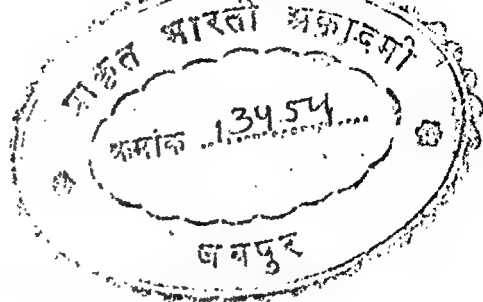 प्राकृत भारती अकादमी
क्रमांक .13454
जयपुर